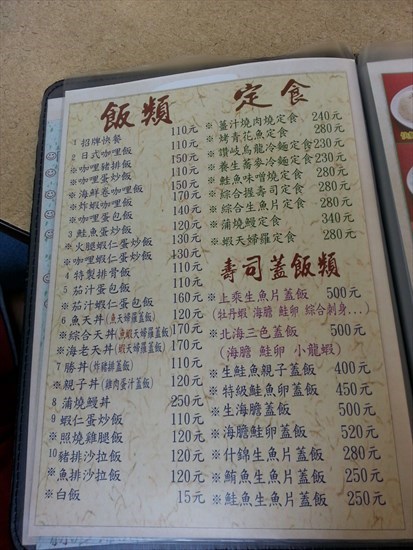 飯類
1 招牌快餐 110元
2 日式咖哩飯 110元
※咖哩豬排飯 150元
※咖哩蛋炒飯 110元
※海鮮卷咖哩飯 150元
※炸蝦咖哩飯 170元
※咖哩蛋包飯 140元
3 鮭魚蛋炒飯 120元
※火腿蝦仁蛋炒飯 130元
※咖哩蝦仁蛋炒飯 130元
4 特製排骨飯 110元
5 茄汁蛋包飯 110元
※茄汁蝦仁蛋包飯 160元
6 魚天丼(魚天婦羅蓋飯) 120元
※綜合天丼(魚蝦天婦羅蓋飯) 170元
※海老天丼(蝦天婦羅蓋飯) 170元
7 勝丼(炸豬排蓋飯) 110元
※親子丼(雞肉蛋汁蓋飯) 120元
8 蒲燒鰻丼 250元
9 蝦仁蛋炒飯 110元
※照燒雞腿飯 120元
10 豬排沙拉飯 120元
※魚排沙拉飯 120元
※白飯 15元
定食
※薑汁燒肉燒定食 240元
※烤青花魚定食 280元
※讚岐烏龍冷麵定食 230元
※養生蕎麥冷麵定食 230元
※鮭魚味噌燒定食 280元
※綜合握壽司定食 280元
※綜合生魚片定食 280元
※蒲燒鰻定食 340元
※蝦天婦羅定食 280元
壽司蓋飯類
※上乘生魚片蓋飯 500元
(牡丹蝦 海膽 鮭卵 綜合刺身...)
※北海三色蓋飯 500元
(海膽 鮭卵 小龍蝦)
※生鮭魚親子蓋飯 400元
※特級鮭魚卵蓋飯 450元
※生海膽蓋飯 500元
※海膽鮭卵蓋飯 520元
※什錦生魚片蓋飯 280元
※鮪魚生魚片蓋飯 250元
※鮭魚生魚片蓋飯 250元